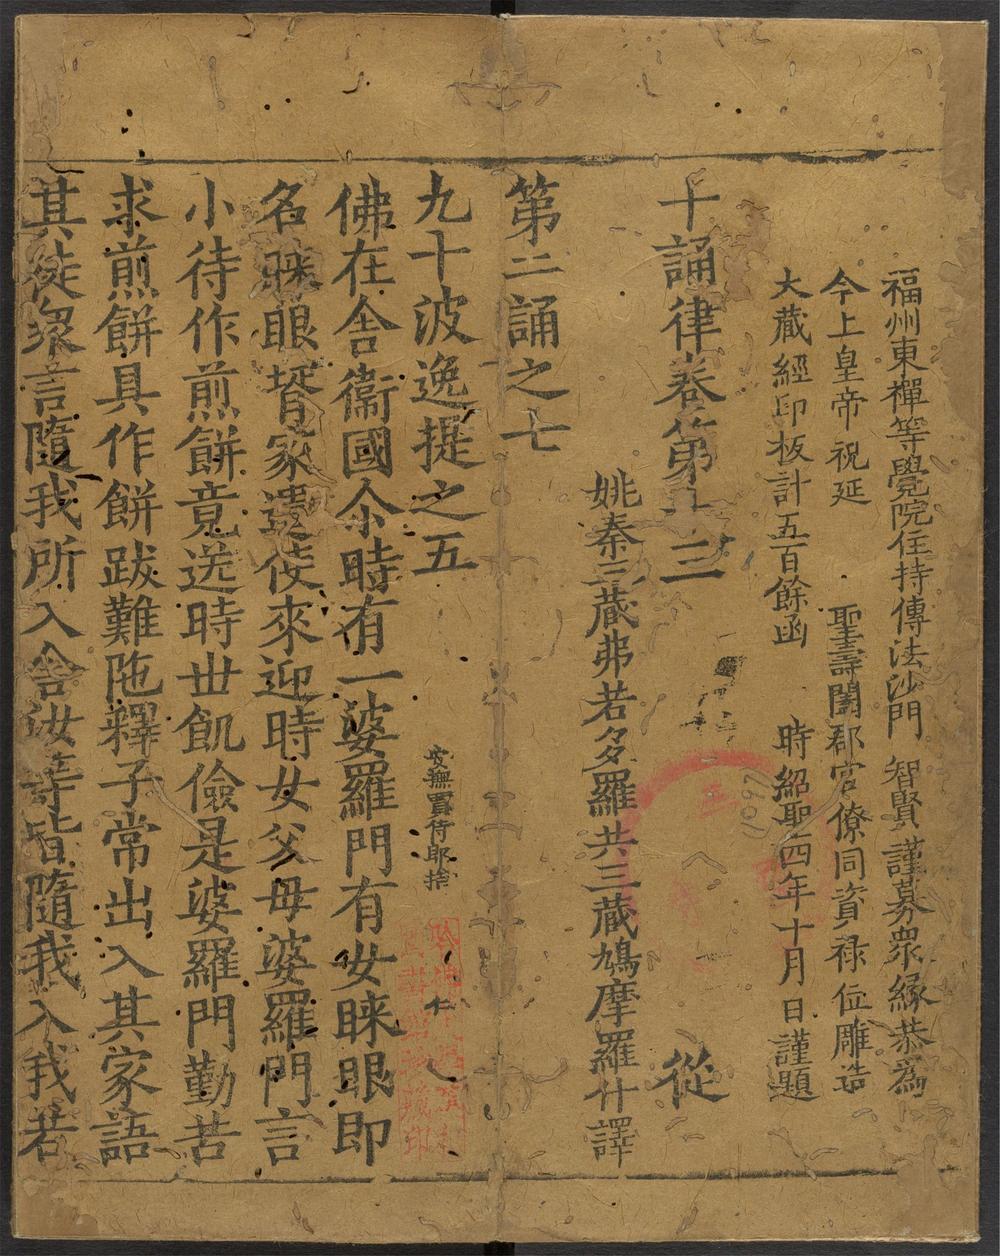 福州東禪等覺院住持傳法沙門 智賢 謹募衆緣恭爲
今上皇帝祝延 聖壽闔郡官僚同資禄位雕造
大藏經印板計五百餘函 時紹聖四年十月 日謹題
十誦律卷第十三 從
姚秦三藏弗若多羅共三藏鳩摩羅什譯
第二誦之七
九十波逸提之五
安撫賈侍郎捨
佛在舍衞國尒時有一婆羅門有女睞眼即
名睞眼壻家遣使來迎時女父母婆羅門言
小待作煎餅竟送時丗飢儉是婆羅門勤苦
求煎餅具作餅跋難陁釋子常出入其家語
其徒衆言隨我所入舍汝等皆隨我入我若
1097